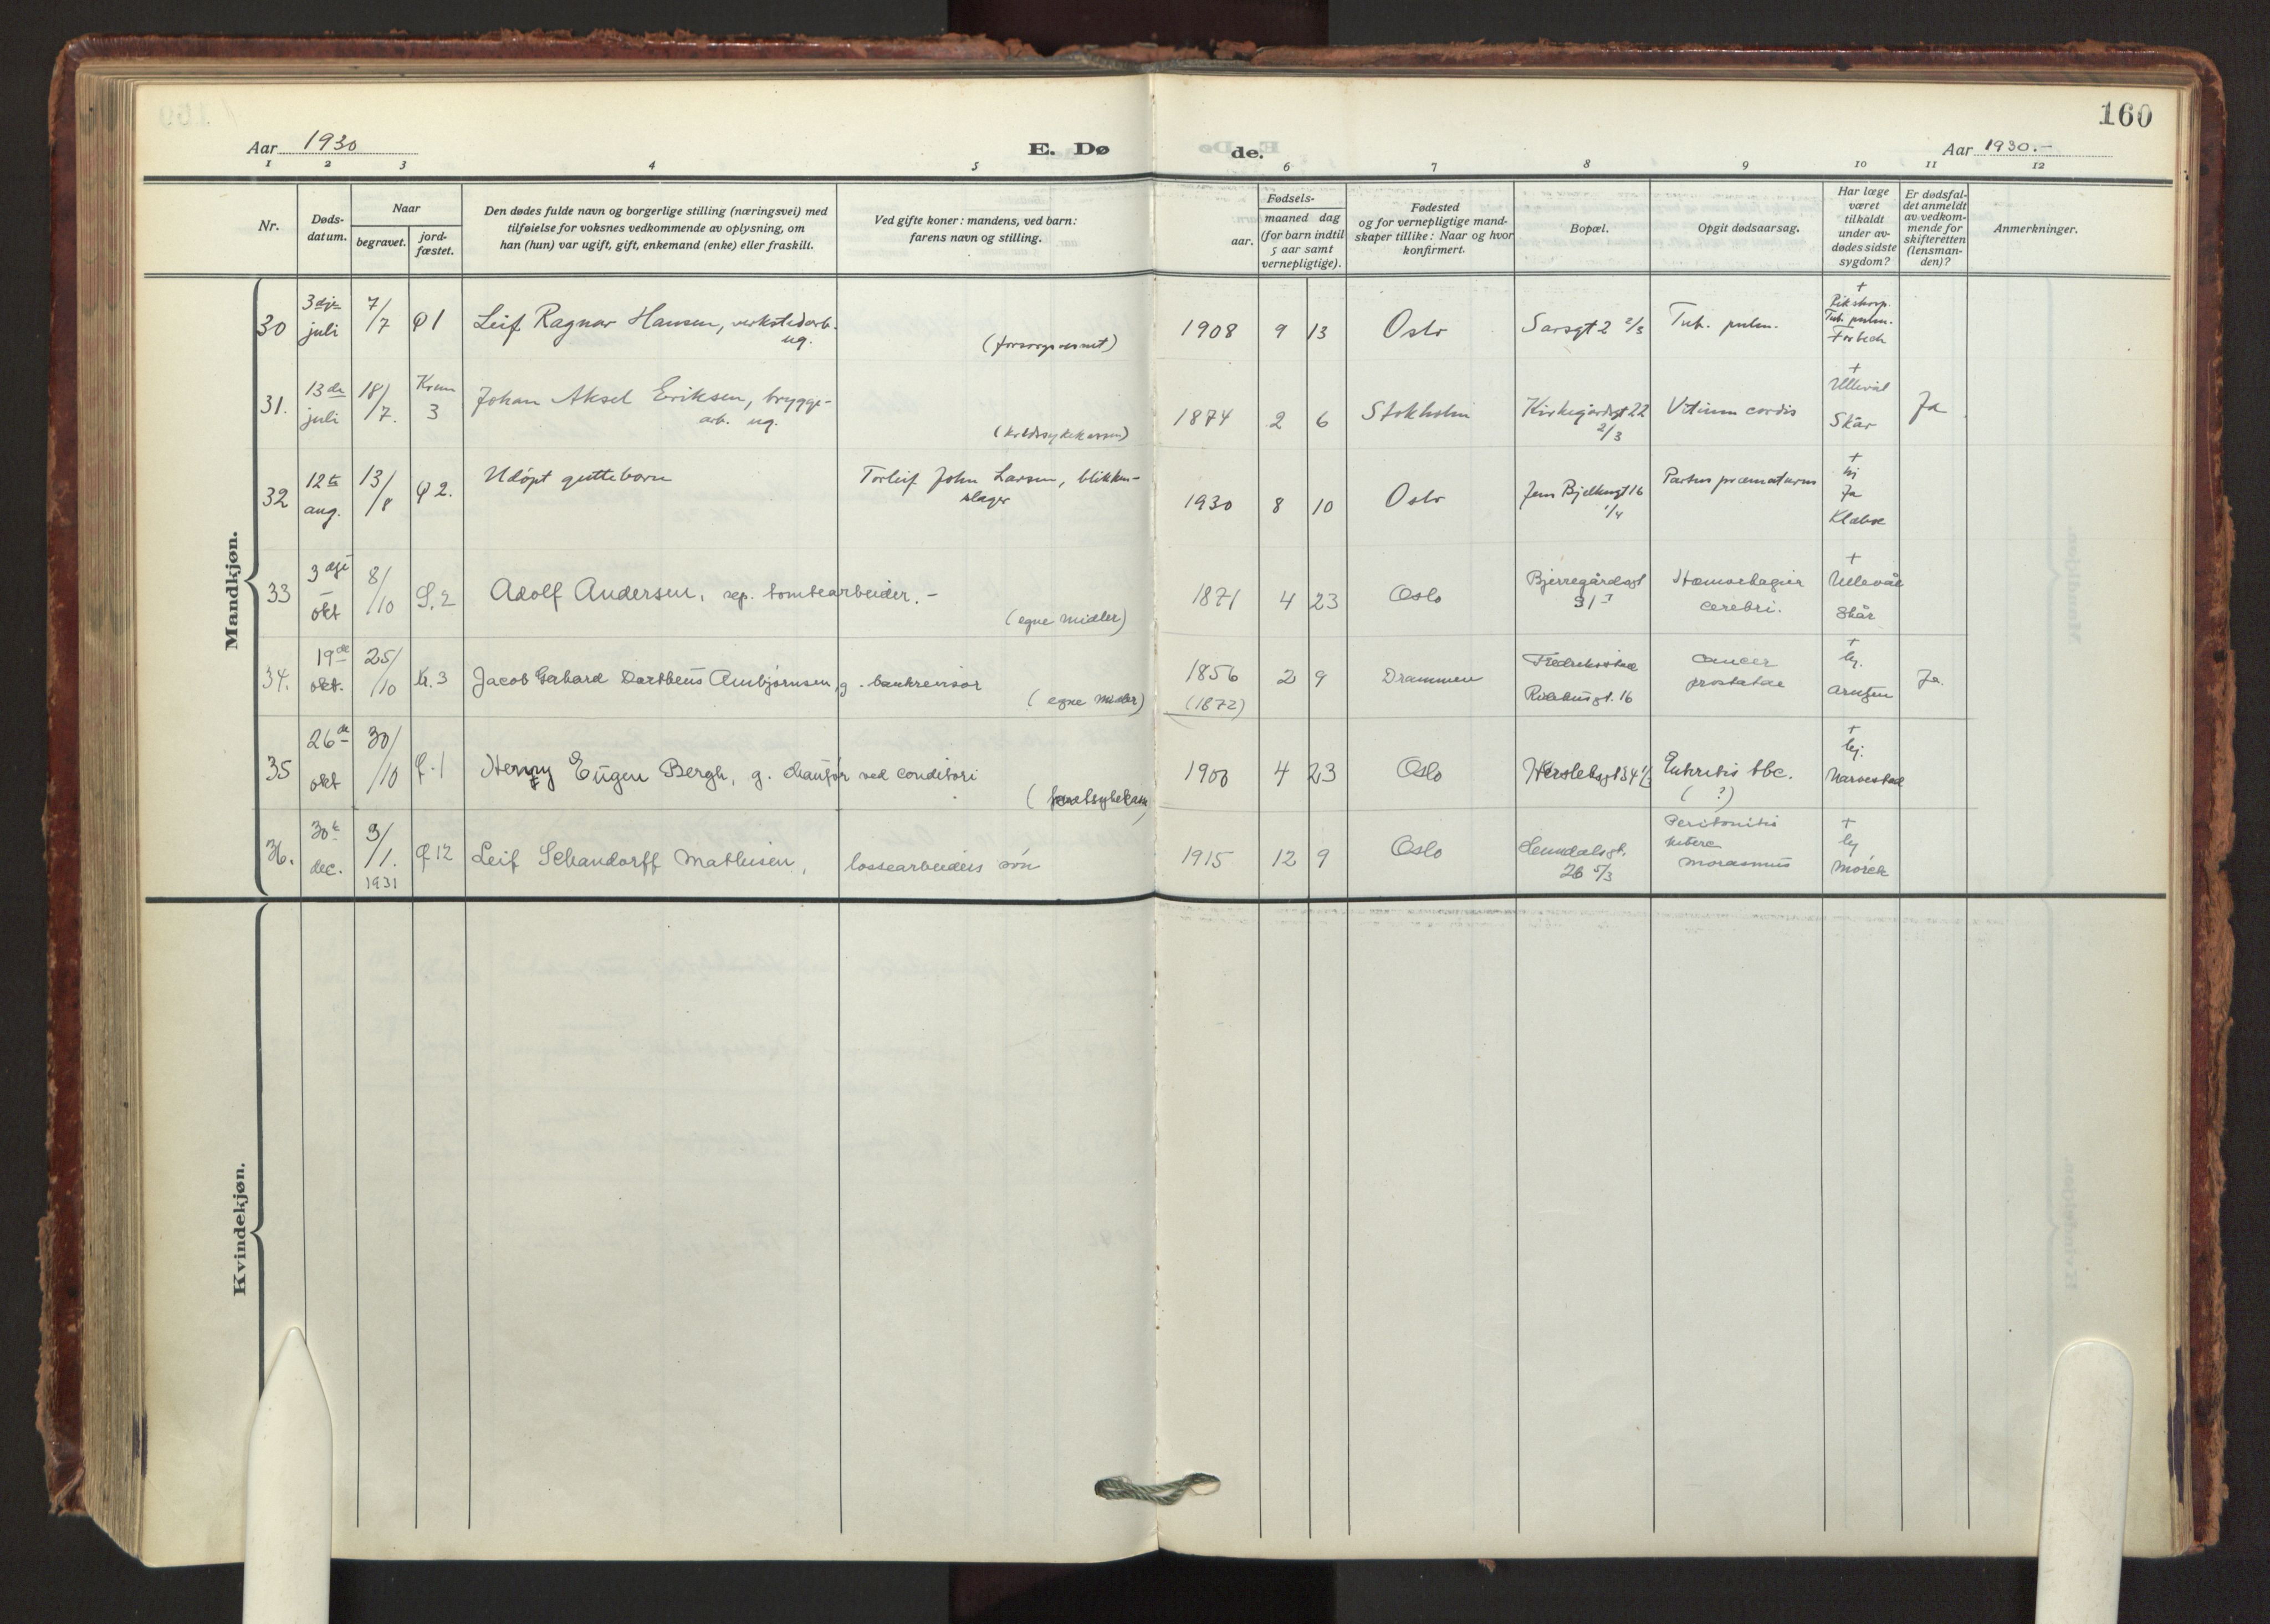 160
Aar 1930
E. Dø
de.
Aar 1930.-
1 2 3 4 5 6 7 8 9 10 11 12
Nr.
Døds-
datum.
Naar
begravet.
jord-
fæstet.
Den dødes fulde navn og borgerlige stilling (næringsvei) med
tilføielse for voksnes vedkommende av oplysning, om
han (hun) var ugift, gift, enkemand (enke) eller fraskilt.
Ved gifte koner: mandens, ved barn:
farens navn og stilling.
Fødsels-
aar.
maaned dag
(for barn indtil
5 aar samt
vernepligtige).
Fødested
og for vernepligtige mand-
skaper tillike: Naar og hvor
konfirmert.
Bopæl.
Opgit dødsaarsag.
Har læge
været
tilkaldt
under av-
dødes sidste
sygdom?
Er dødsfal-
det anmeldt
av vedkom-
mende for
skifteretten
(lensman-
den)?
Anmerkninger.
Mandkjøn.
30 3dje juli 7/7 1 Leif Ragnar Hansen, verkstedarb.
ug.
1908 9 13 Oslo Sarsgt 2 2/3 Tub. pulm. +
Tub. pulm.
31. 13de juli 18/7. Krem 3 Johan Aksel Eriksen, brygge-
arb. ug.
1874 2 6 Stokholm Kirkegårdsgt 22
2/3
Vitium cordis +
Ullevål
Skår
Ja
32 12te aug. 13/8 2. Udøpt guttebarn Torleif John Larsen, blikken-
slager
1930 8 10 Oslo Jens Bjelkesgt 16
1/4
Partus præmaturus +
Ja
33 3dje okt 8/10 2 Adolf Andersen, rep. tomtearbeider.-
(egne midler)
1871 4 23 Oslo Bjerregårdsgt
31 I
Hæmorhagia
cerebri.
+
Ullevål
Skår
34. 19de okt. 25/10 Kr. 3 Jacob Gabard Dorthens Ambjørnsen, g. bankrevisor
(egne midler)
1856
(1872)
2 9 Drammen Fredrikstad
16
cancer
prostatae
+
Ja.
35 26de okt 30/10 1 Henry Eugen Bergh, g. chauför ved conditori
1900 4 23 Oslo Herslebsgt 34 Enteritis tbc.
(?)
+
Narvestad
36. 30te dec. 3/1. 1931 12 Leif Schandorff Mathisen, lossearbeiders sön
1915 12 9 Oslo
26 5/3
Peritonitis
tuberc
morasmus
+
Kvindekjøn.